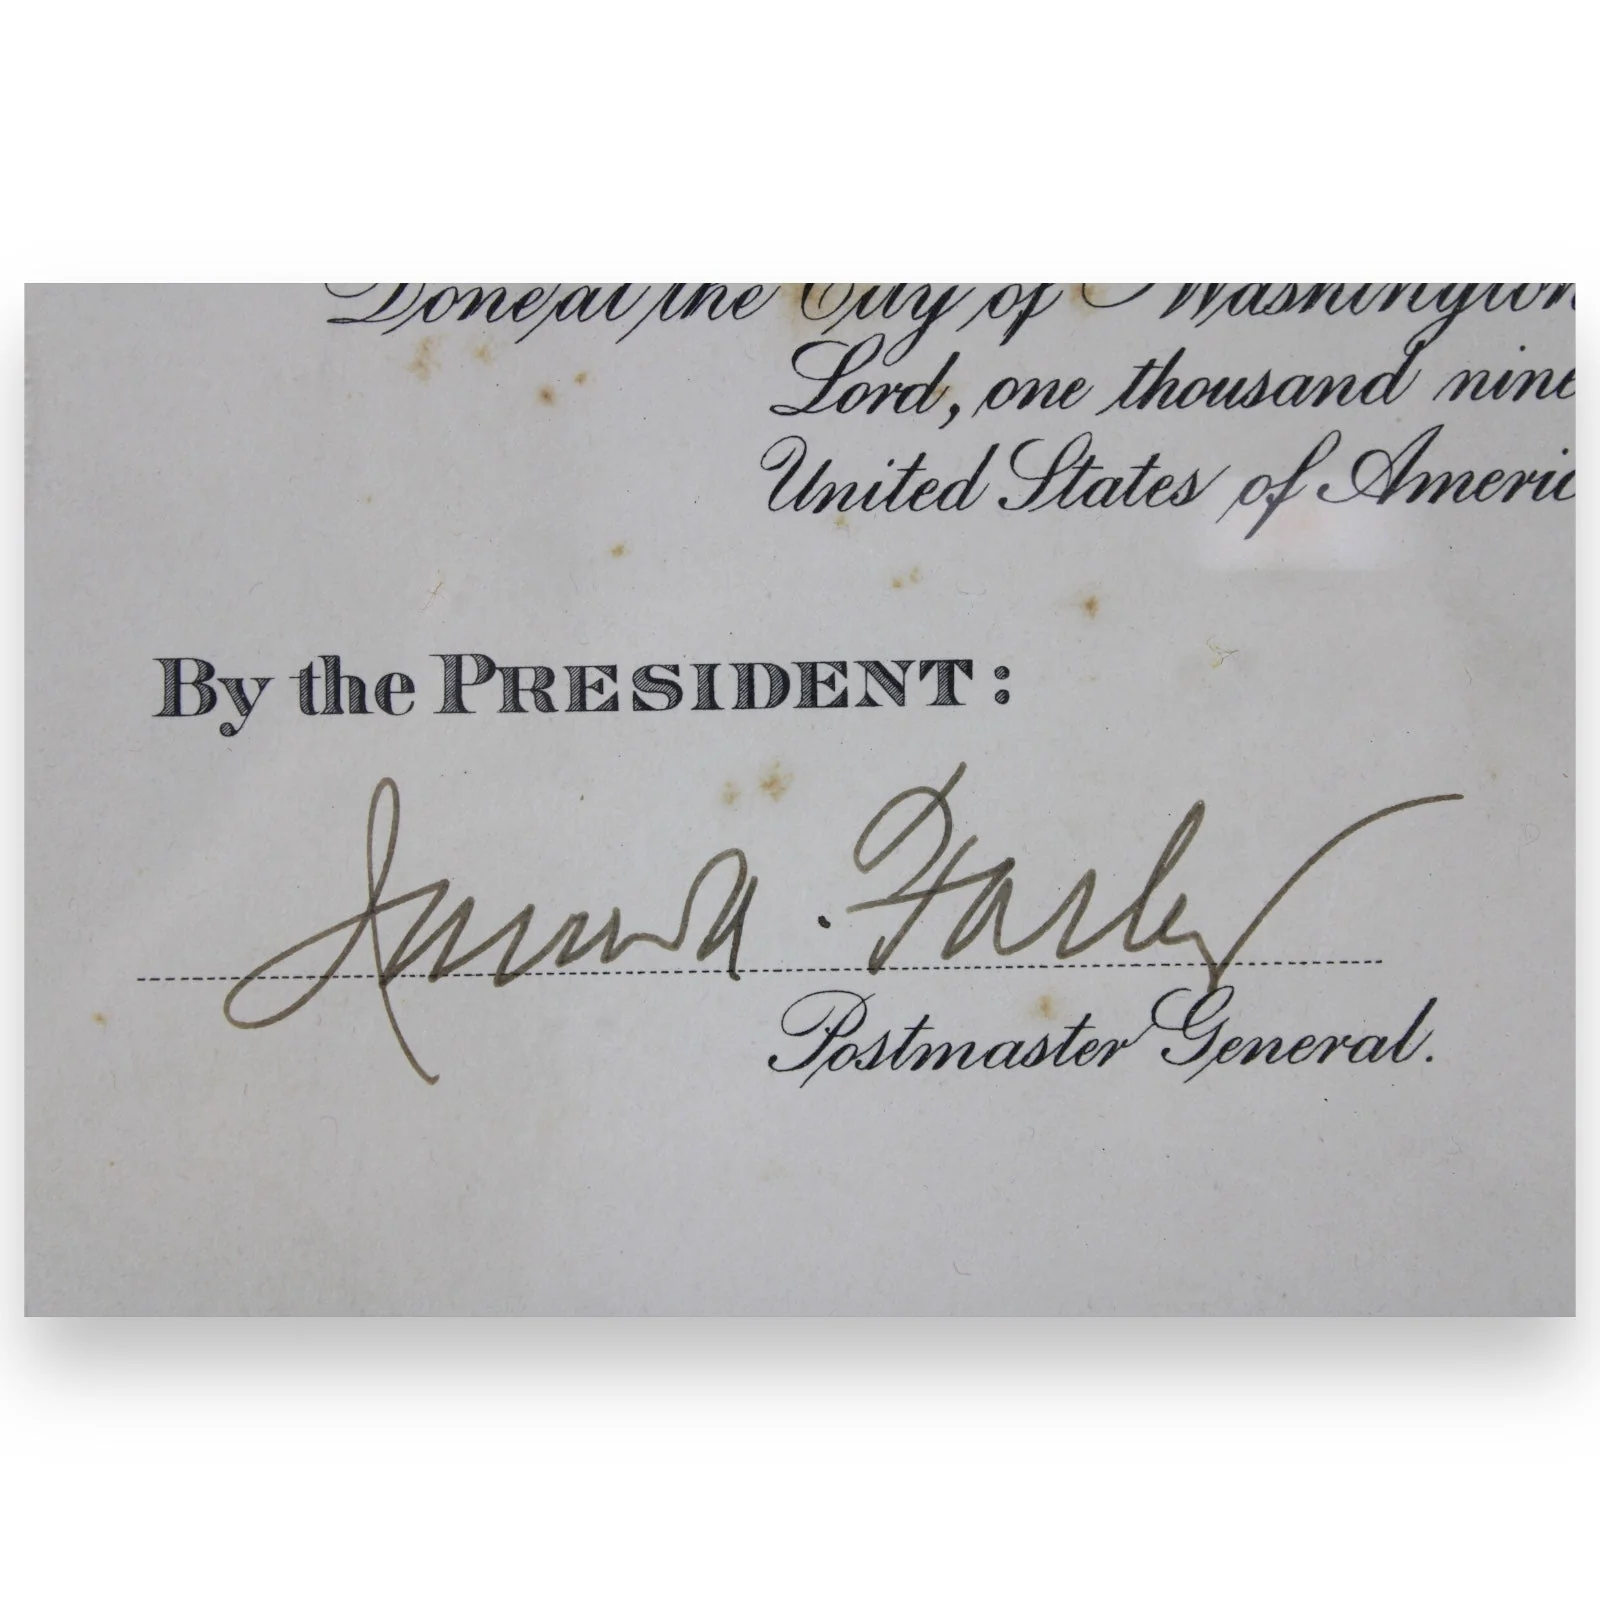 Done at the City of Washington
Lord, one thousand nine
United States of Americ
By the PRESIDENT:
James A. Farley
Postmaster General.